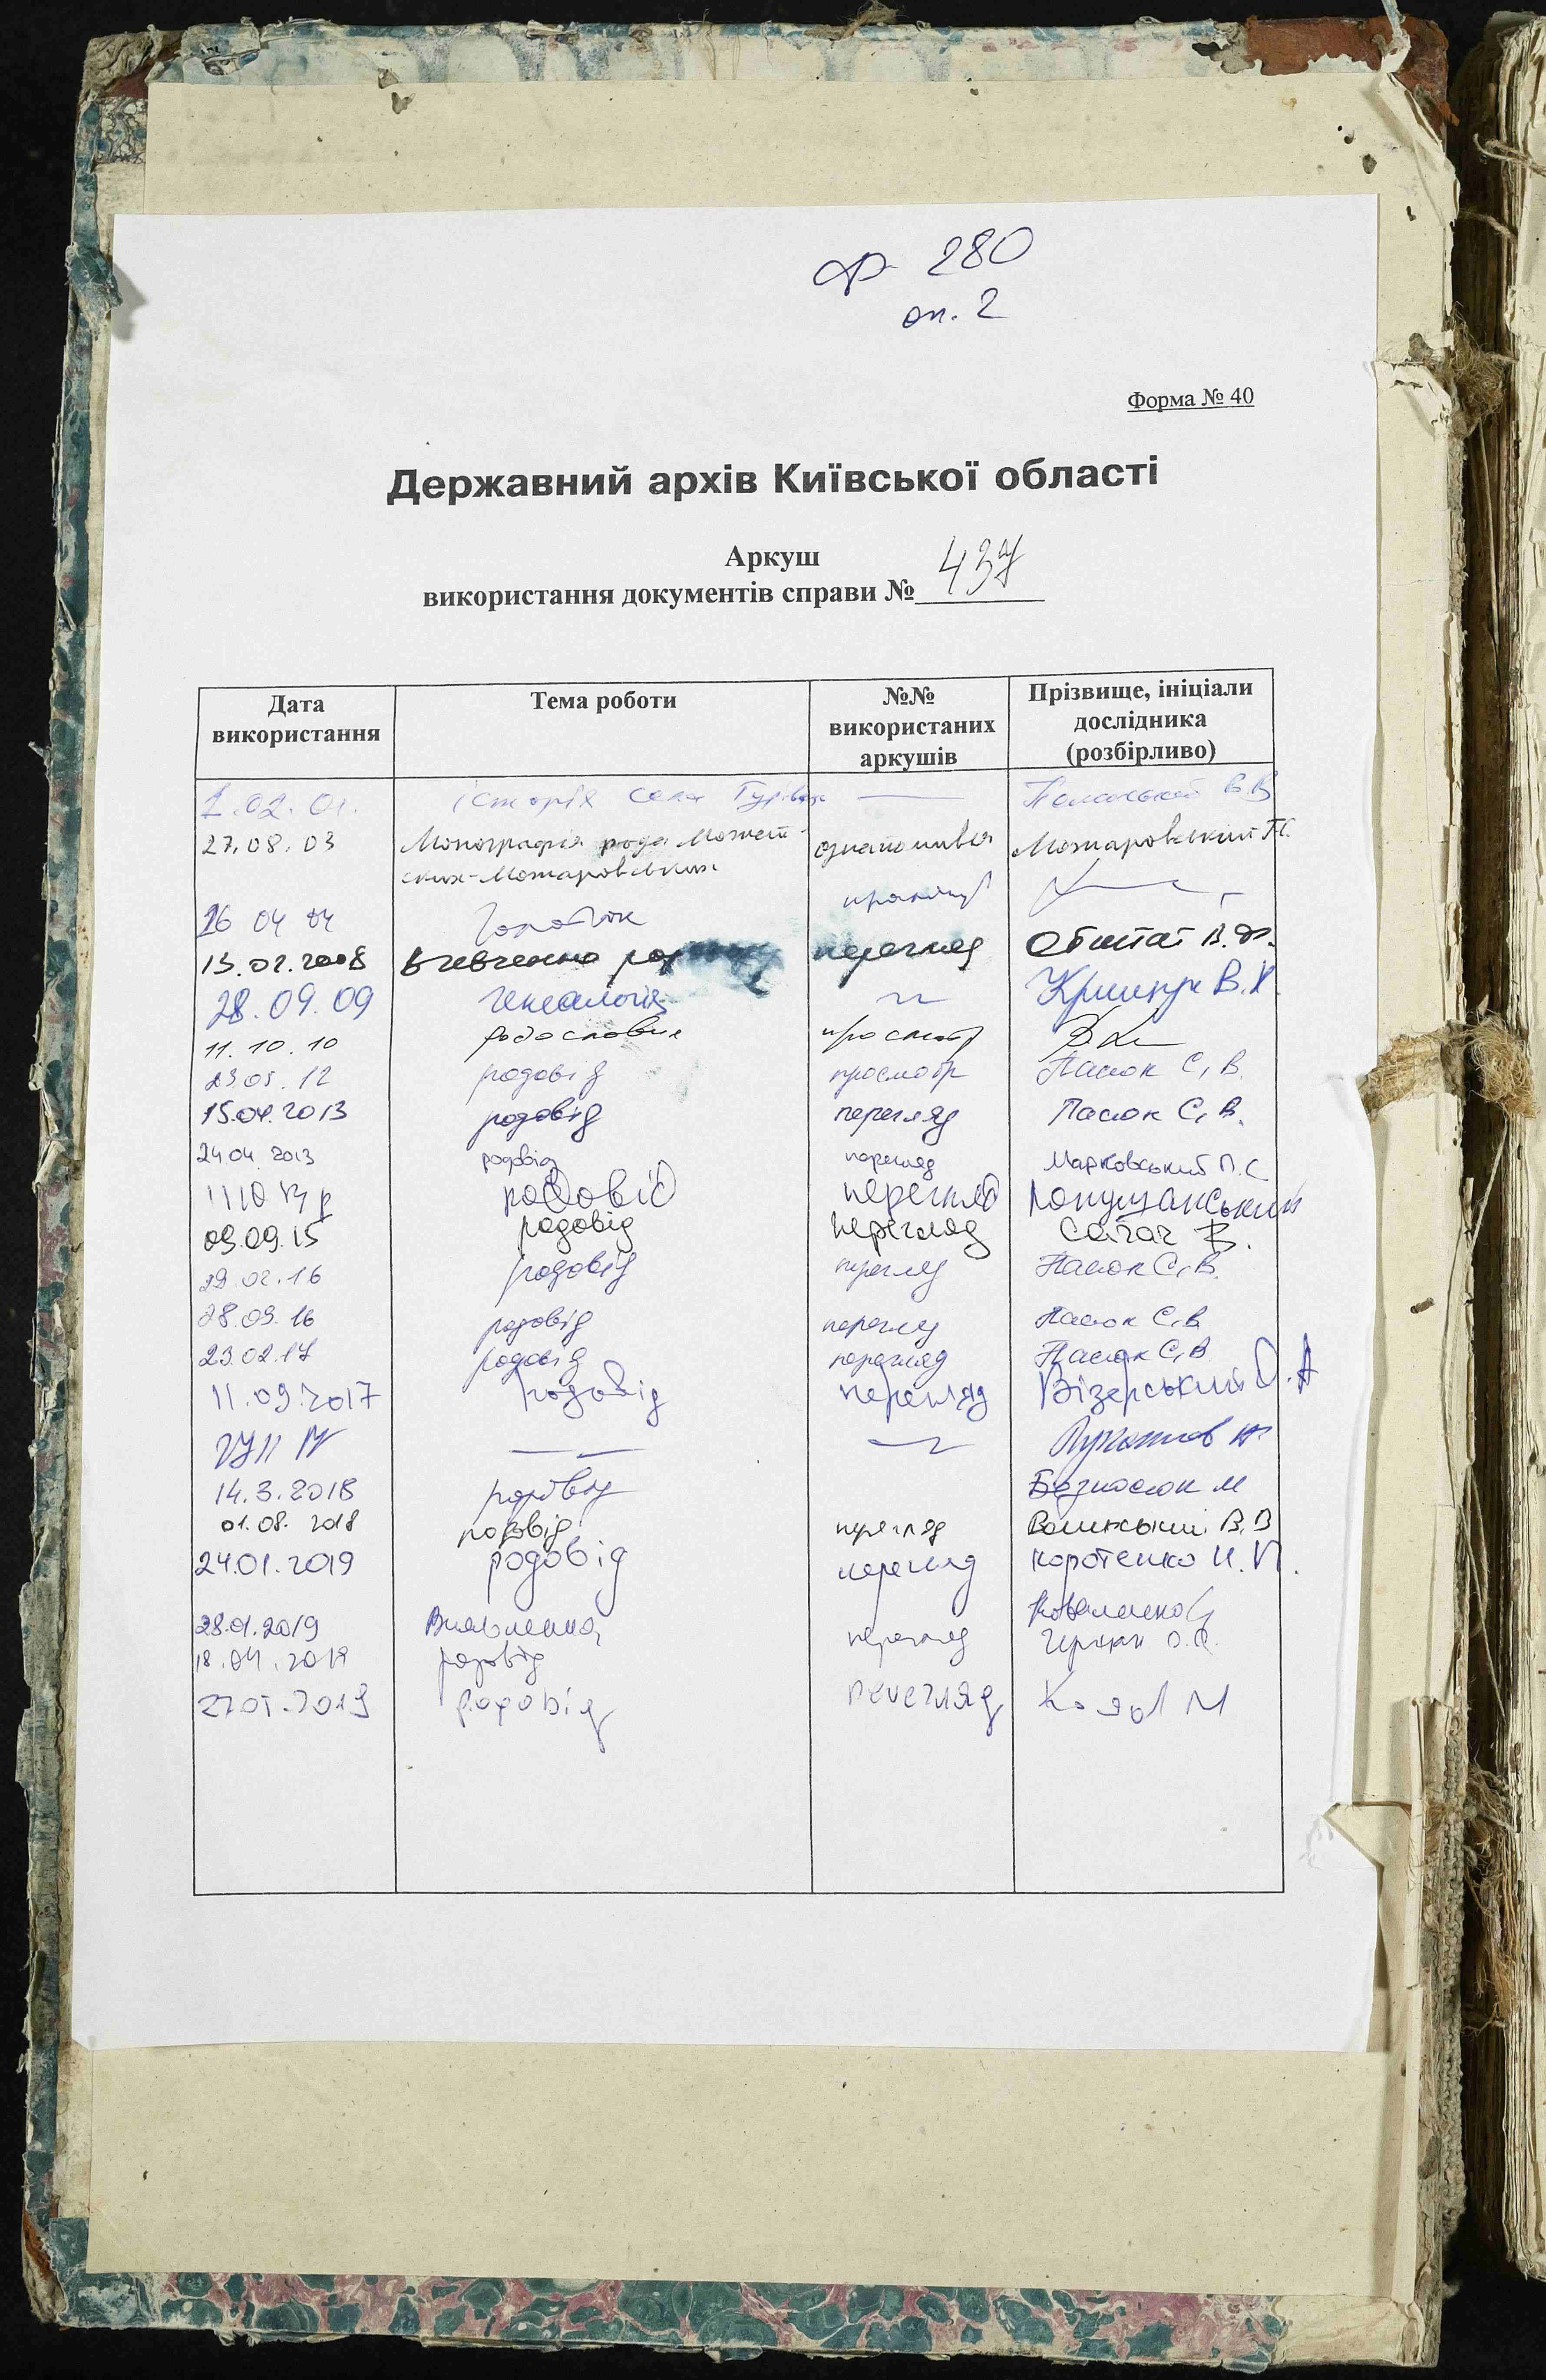 ф 280
оп. 2
Форма № 40
Державний архів Київської області
Аркуш
використання документів справи № 437
Дата використання Тема роботи №№ використаних аркушів Прізвище, ініціали дослідника (розбірливо)
1.02.01. історія села —
27.08.03 Монографія рода ознайомився Можаровський
ских-Можаровських
26 04 04
13.02.2008 Вивчення перегляд В.
28.09.09 генеалогія В.
11.10.10 просмотр
23.05.12 родовід просмотр Пасюк С.В.
15.04.2013 родовід перегляд Пасюк С.В.
24.04.2013 родовід перегляд Марковський П.С
родовід перегляд Лопушанський
09.09.15 родовід перегляд Сагач В.
29.02.16 родовід перегляд Пасюк С.В.
28.09.16 родовід перегляд Пасюк С.В
23.02.17 родовід перегляд Пасюк С.В
11.09.2017 родовід перегляд Візерський О.А
— —
14.3.2018 родовід Безносюк М
01.08.2018 родовід перегляд Волинський В.В
24.01.2019 родовід перегляд Коротенко И.П.
28.01.2019 Виявлення Коваленко
18.04.2019 родовід перегляд О.
27.05.2019 родовід перегляд М